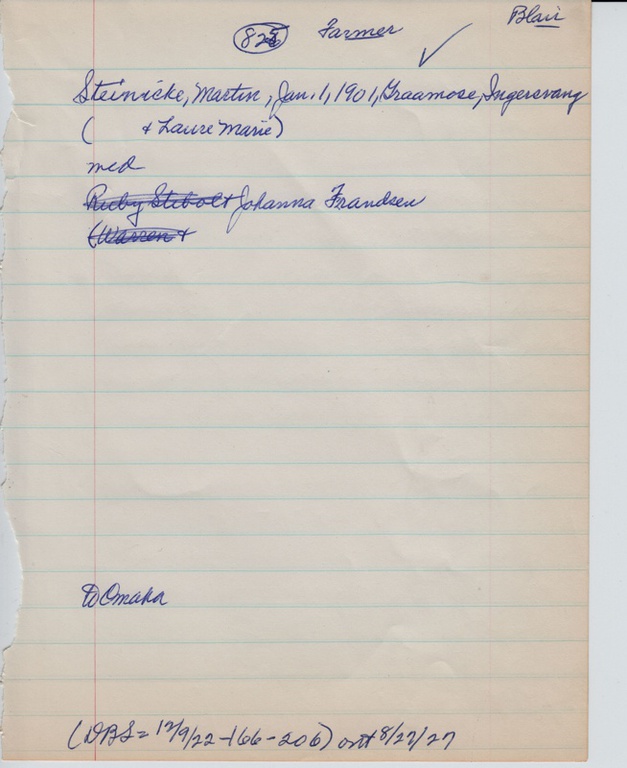 825 Farmer Blair
Steinicke, Martin, Jan. 1, 1901, Graamose, Ingersvang
( + Laure Marie)
med
Ruby Stibolt Johanna Frandsen
(Warren +
to Omaha
(DBS = 12/9/22-166-206) out 8/27/27